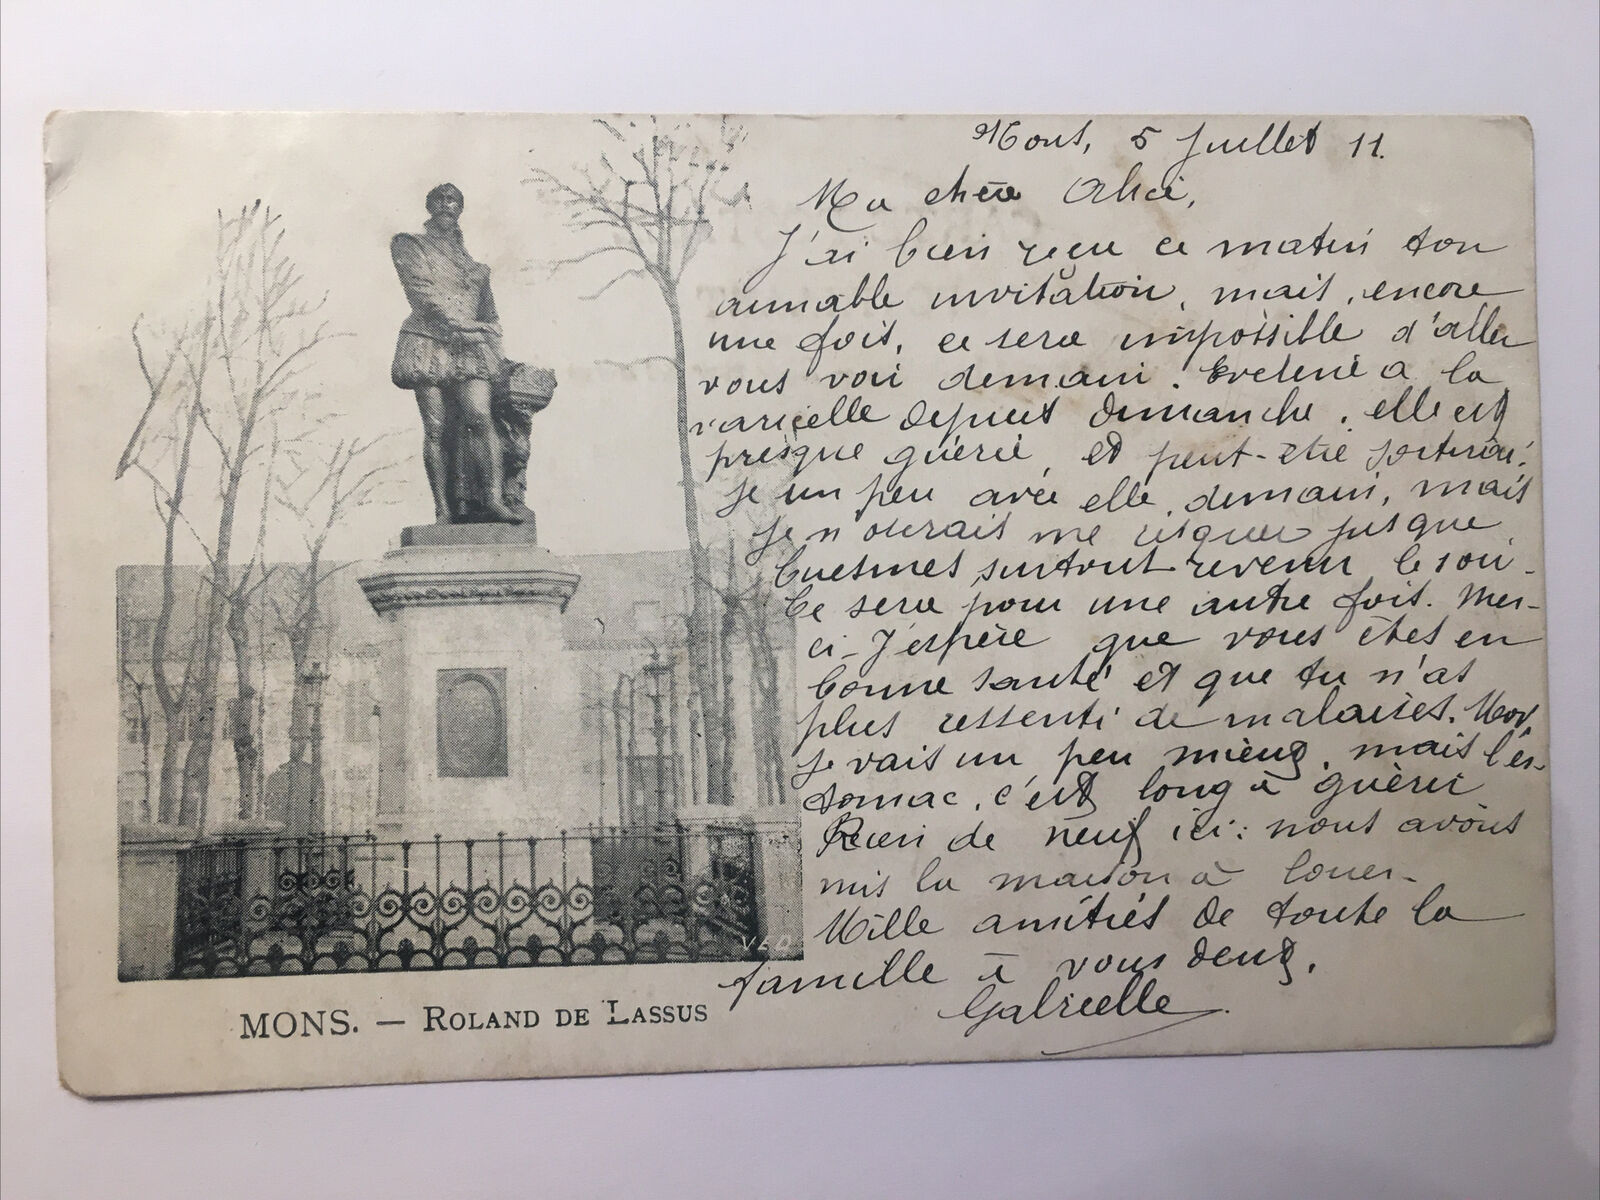 Mons, 5 Juillet 11.
Ma chère Alice,
J'ai bien reçu ce matin ton
aimable invitation, mais, encore
une fois, ce sera impossible d'aller
vous voir demain. a la
varicelle depuis dimanche, elle est
presque guérie, et peut-être sortirai-
je un peu avec elle, demain, mais
je n'oserais me risquer jusque
Cuesmes surtout revenir le soir.
Ce sera pour une autre fois. Mer-
ci. J'espère que vous êtes en
bonne santé et que tu n'as
plus ressenti de malaises. Moi,
je vais un peu mieux, mais l'es-
tomac, c'est long à guérir
Rien de neuf ici: nous avons
mis la maison à louer.
Mille amitiés de toute la
famille à vous deux.
Gabrielle
VED
MONS. — ROLAND DE LASSUS